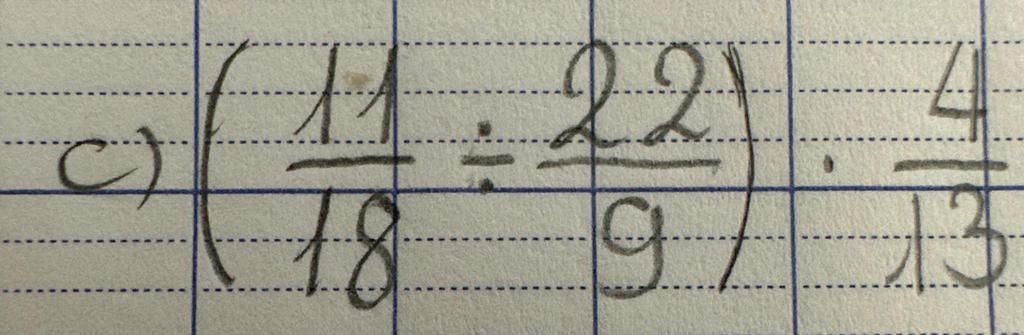 c) (11/18 ÷ 22/9) · 4/13